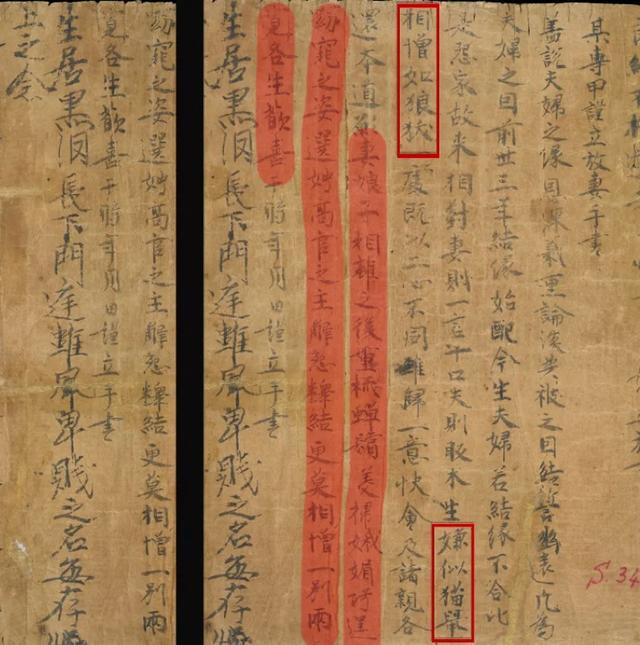 其専甲謹立放妻手書
蓋説夫婦之緣恩深義重論談共被之因結誓幽遠凡為
夫婦之因前世三年結緣始配今生夫婦若結緣不合比
是怨家故来相對妻則一言十口夫則反木生嫌似猫鼠
相憎如狼犺一處既以二心不同難歸一意快會及諸親各
還本道願妻娘子相離之後重梳蟬鬢美掃娥媚巧逞
窈窕之姿選娉高官之主解怨釋結更莫相憎一別兩
寬各生歡喜于時年月日謹立手書
生居 長下門庭雖 卑賤之名每存
S.34
窈窕之姿選娉高官之主解怨釋結更莫相憎一別兩
寬各生歡喜于時年月日謹立手書
生居 長下門庭雖 卑賤之名每存
上之念